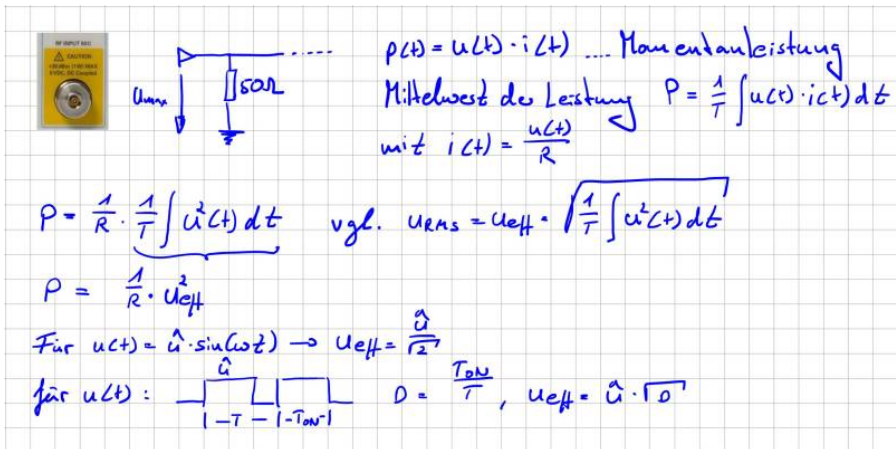 RF INPUT 50Ω
CAUTION
+30dBm (1W) MAX
0 VDC, DC Coupled
Umax
50Ω
p(t) = u(t) · i(t) .... Momentanleistung
Mittelwert der Leistung P = 1/T ∫ u(t) · i(t) dt
mit i(t) = u(t)/R
P = 1/R · 1/T ∫ u²(t) dt vgl. URMS = Ueff = √(1/T ∫ u²(t) dt)
P = 1/R · U²eff
Für u(t) = û · sin(ωt) → Ueff = û/√2
für u(t) : û |-T-|-TON-| D = TON/T , Ueff = û · √D